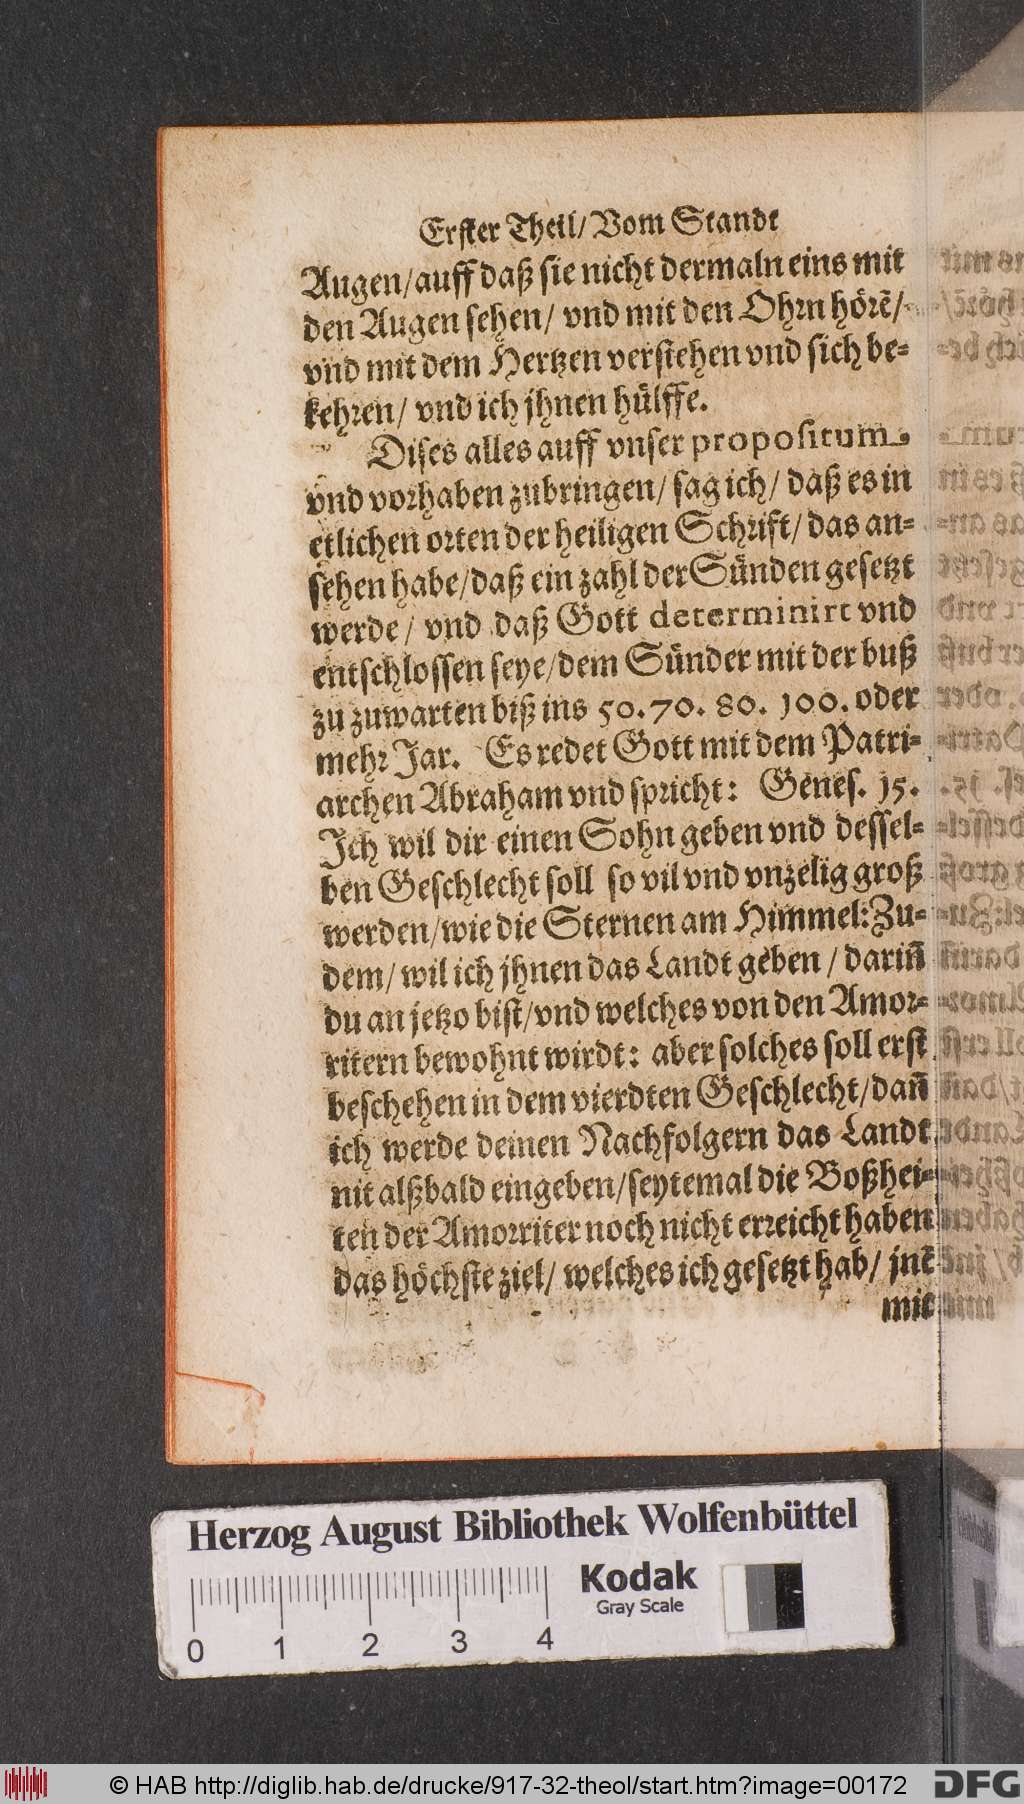 Erster Theil/ Vom Standt
Augen/auff daß sie nicht dermaln eins mit
den Augen sehen/ vnd mit den Ohrn hörẽ/
vnd mit dem Hertzen verstehen vnd sich be=
kehren/ vnd ich jhnen hülffe.
Dises alles auff vnser propositum
vnd vorhaben zubringen/ sag ich/ daß es in
etlichen orten der heiligen Schrift/ das an=
sehen habe/daß ein zahl der Sünden gesetzt
werde/ vnd daß Gott determinirt vnd
entschlossen seye/dem Sünder mit der buß
zu zuwarten biß ins 50. 70. 80. 100. oder
mehr Jar. Es redet Gott mit dem Patri=
archen Abraham vnd spricht: Genes. 15.
Ich wil dir einen Sohn geben vnd dessel=
ben Geschlecht soll so vil vnd vnzelig groß
werden/wie die Sternen am Himmel: Zu=
dem/ wil ich jhnen das Landt geben / dariñ
du an jetzo bist/vnd welches von den Amor=
ritern bewohnt wirdt: aber solches soll erst
beschehen in dem vierdten Geschlecht/dañ
ich werde deinen Nachfolgern das Landt
nit alßbald eingeben/seytemal die Boßhei=
ten der Amorriter noch nicht erreicht haben
das höchste ziel/ welches ich gesetzt hab/ jnẽ
mit
Herzog August Bibliothek Wolfenbüttel
Kodak
Gray Scale
0 1 2 3 4
© HAB http://diglib.hab.de/drucke/917-32-theol/start.htm?image=00172
DFG